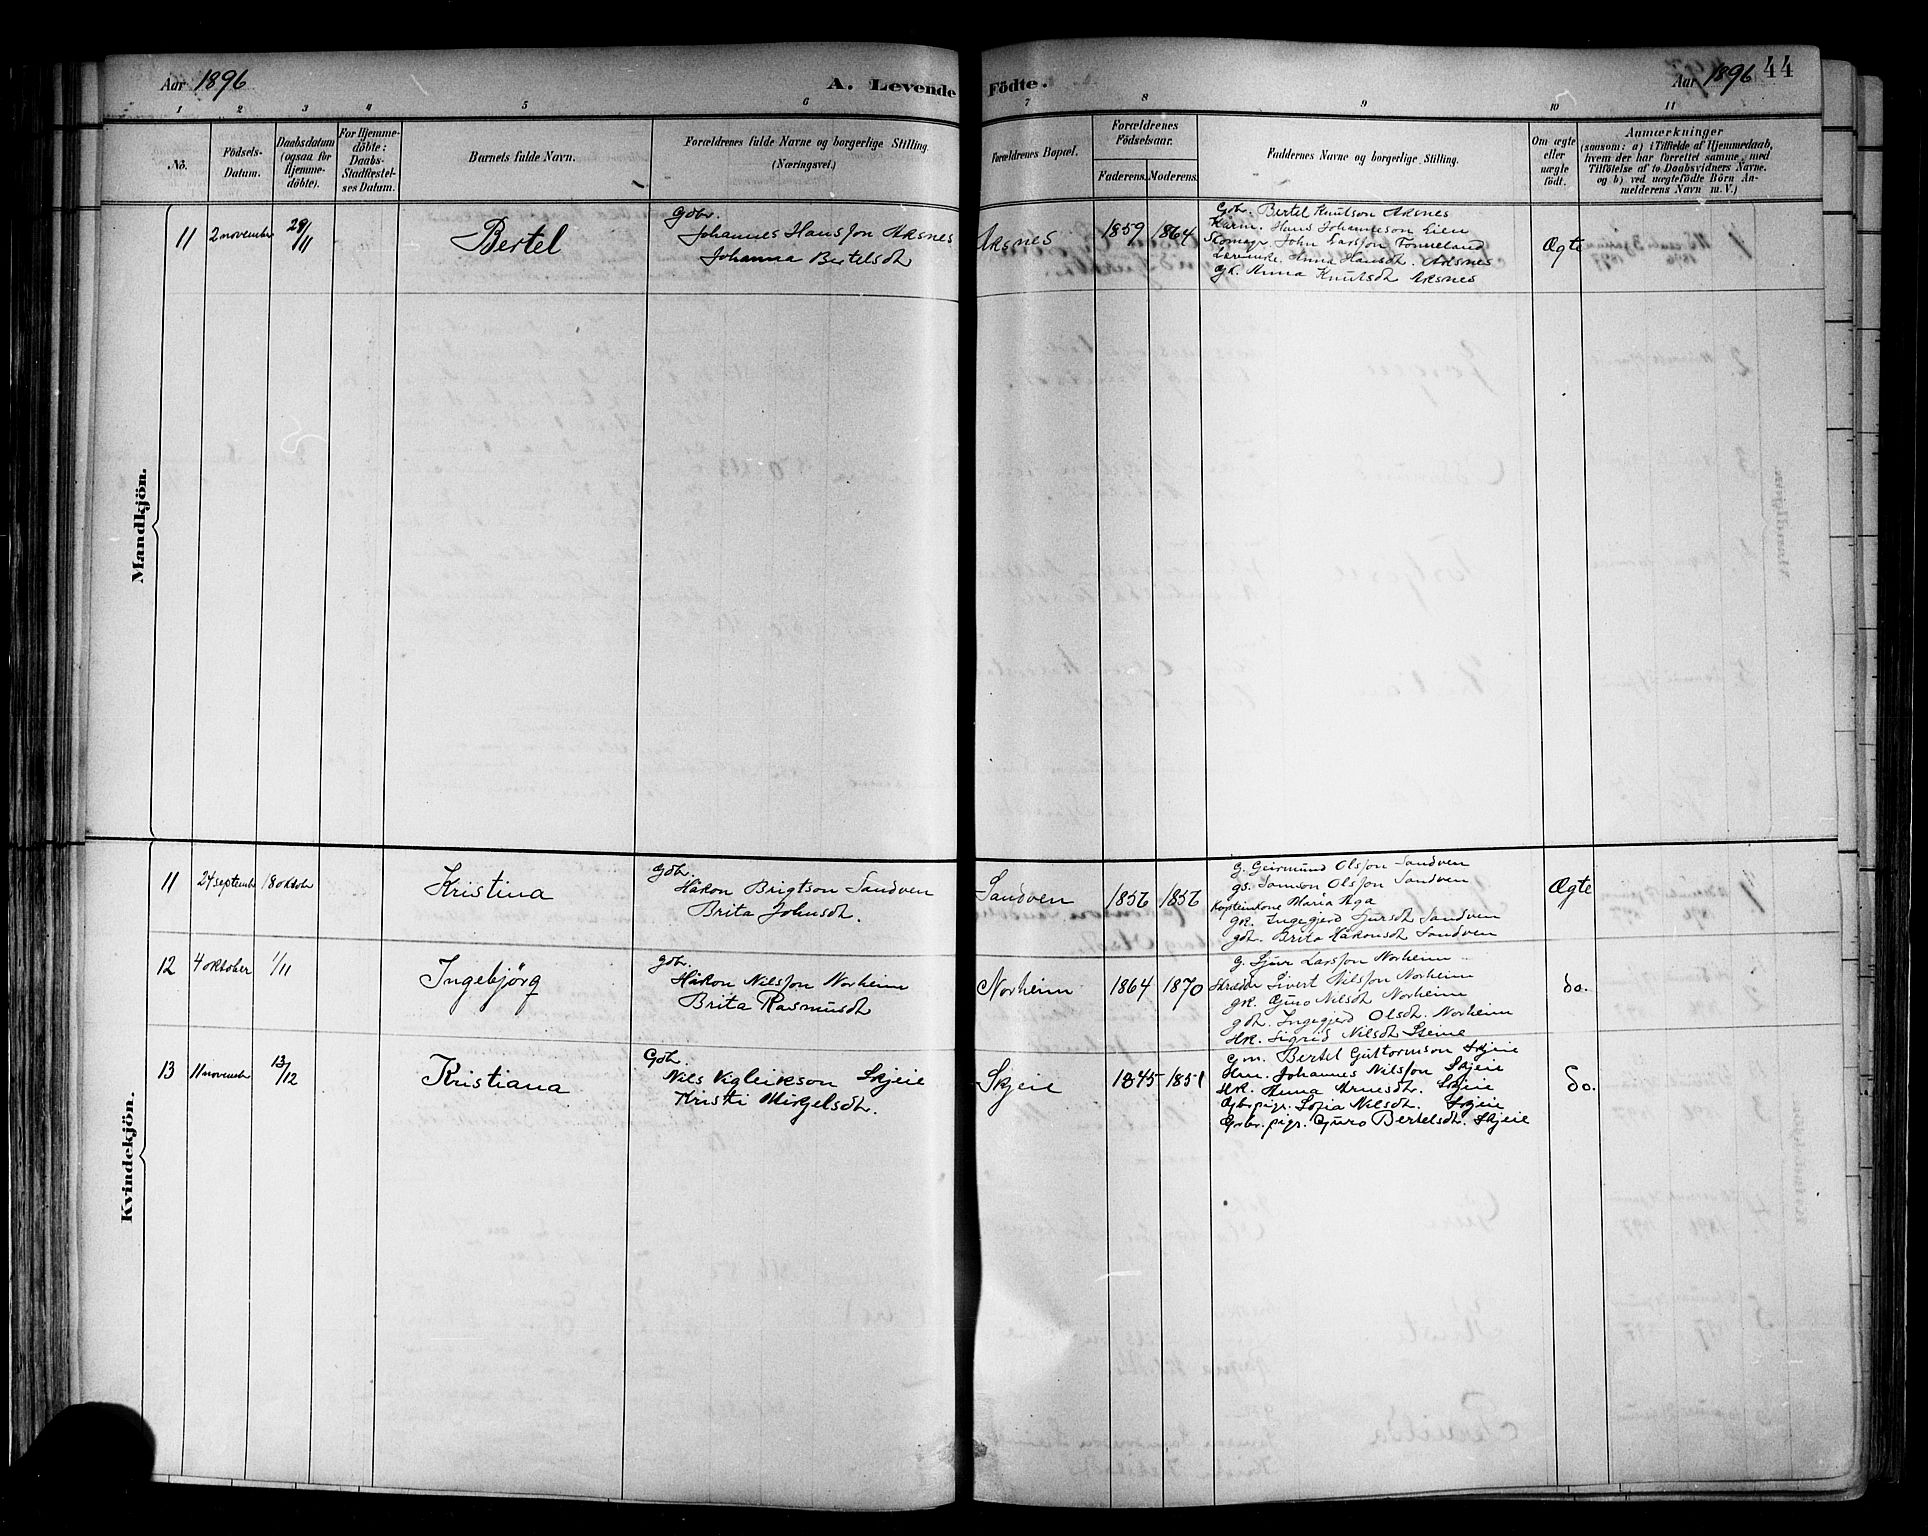 Aar 1896
A. Levende Födte.
Aar 1896 44
1 2 3 4 5 6 7 8 9 10 11
No.
Födsels-Datum.
Daabsdatum (ogsaa for Hjemme-döbte).
For Hjemme-döbte: Daabs-Stadfæstel-ses Datum.
Barnets fulde Navn.
Forældrenes fulde Navne og borgerlige Stilling. (Næringsvei.)
Forældrenes Bopæl.
Forældrenes Födselsaar.
Faderens. Moderens.
Faddernes Navne og borgerlige Stilling.
Om ægte eller uægte födt.
Anmærkninger
(saasom: a) i Tilfælde af Hjemmedaab, hvem der har forrettet samme, med Tilföielse af to Daabsvidners Navne, og b) ved uægtefödte Börn An-melderens Navn m. V.)
Mandkjön.
11 2 november 29/11 Bertel
Gdbr.
Johannes Hansson Aksnes
Johanna Bertelsdt
Aksnes 1859 1864
Gbr. Bertel Knutson Aksnes
Hans Johanneson Eilen
Skomagr. John Larsson Tonneland
Anna Hansdt. Aksnes
gk. Anna Knutsdt Aksnes
Ægte
Kvindekjön.
11 24 september 18 oktobr Kristina
Gdbr.
Håkon Brigtson Sandven
Brita Johnsdt.
Sandven 1856 1856
G. Geirmund Olsson Sandven
gs. Samson Olsson Sandven
Kapteinkone Maria Aga
gk. Ingegjerd Sjursdt Sandven
gdt. Brita Håkonsdt Sandven
Ægte
12 4 oktober 1/11 Ingebjörg
gdbr.
Håkon Nilsson Norheim
Brita Rasmusdt
Norheim 1864 1870
G. Sjur Larsson Norheim
Skrædder Sivert Nilsson Norheim
gk. Guro Nilsdt Norheim
gdt. Ingegjerd Olsdt. Norheim
Hk. Sigrid Nilsdt Steine
do.
13 11 november 13/12 Kristiana
Gdb.
Nils Vigleikson Skjeie
Kristi Mikjelsdt.
Skjeie 1845 1851
Gm. Bertel Guttormson Skjeie
Hm. Johannes Nilsson Skjeie
Hk. Anna Arnesdt. Skjeie
Gbr.pige. Sofia Nilsdt. Skjeie
Gbr.pige. Guro Bertelsdt. Skjeie
do.